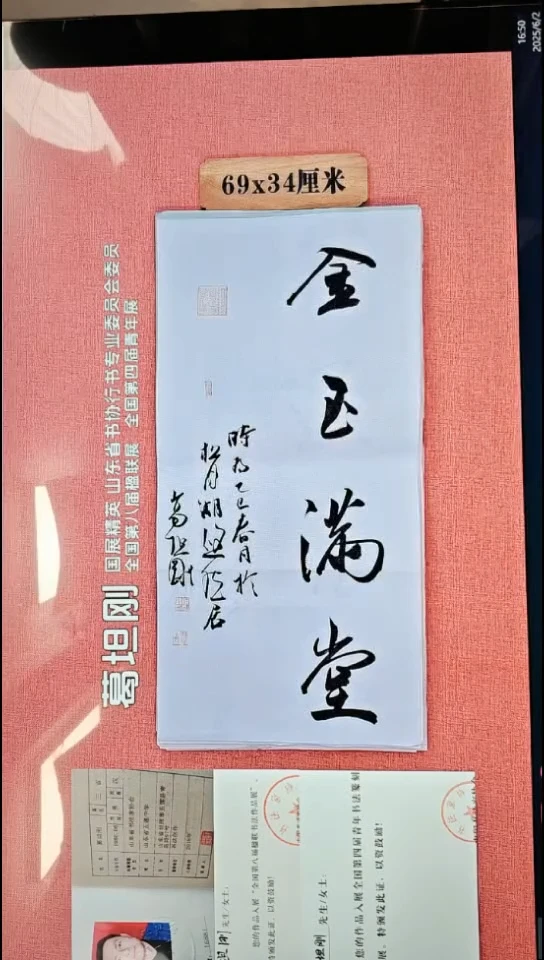 16:50
2025/6/2
69x34厘米
金玉满堂
時为乙巳春月於
松月湖
葛坦刚
葛坦刚
国展精英 山东省书协行书专业委员会委员
全国第八届楹联展 全国第四届青年展
先生/女士:
您的作品入展“全国第八届楹联书法作品展”,
特颁发此证, 以资鼓励!
坦刚 先生/女士:
您的作品入展全国第四届青年书法篆刻
展, 特颁发此证, 以资鼓励!